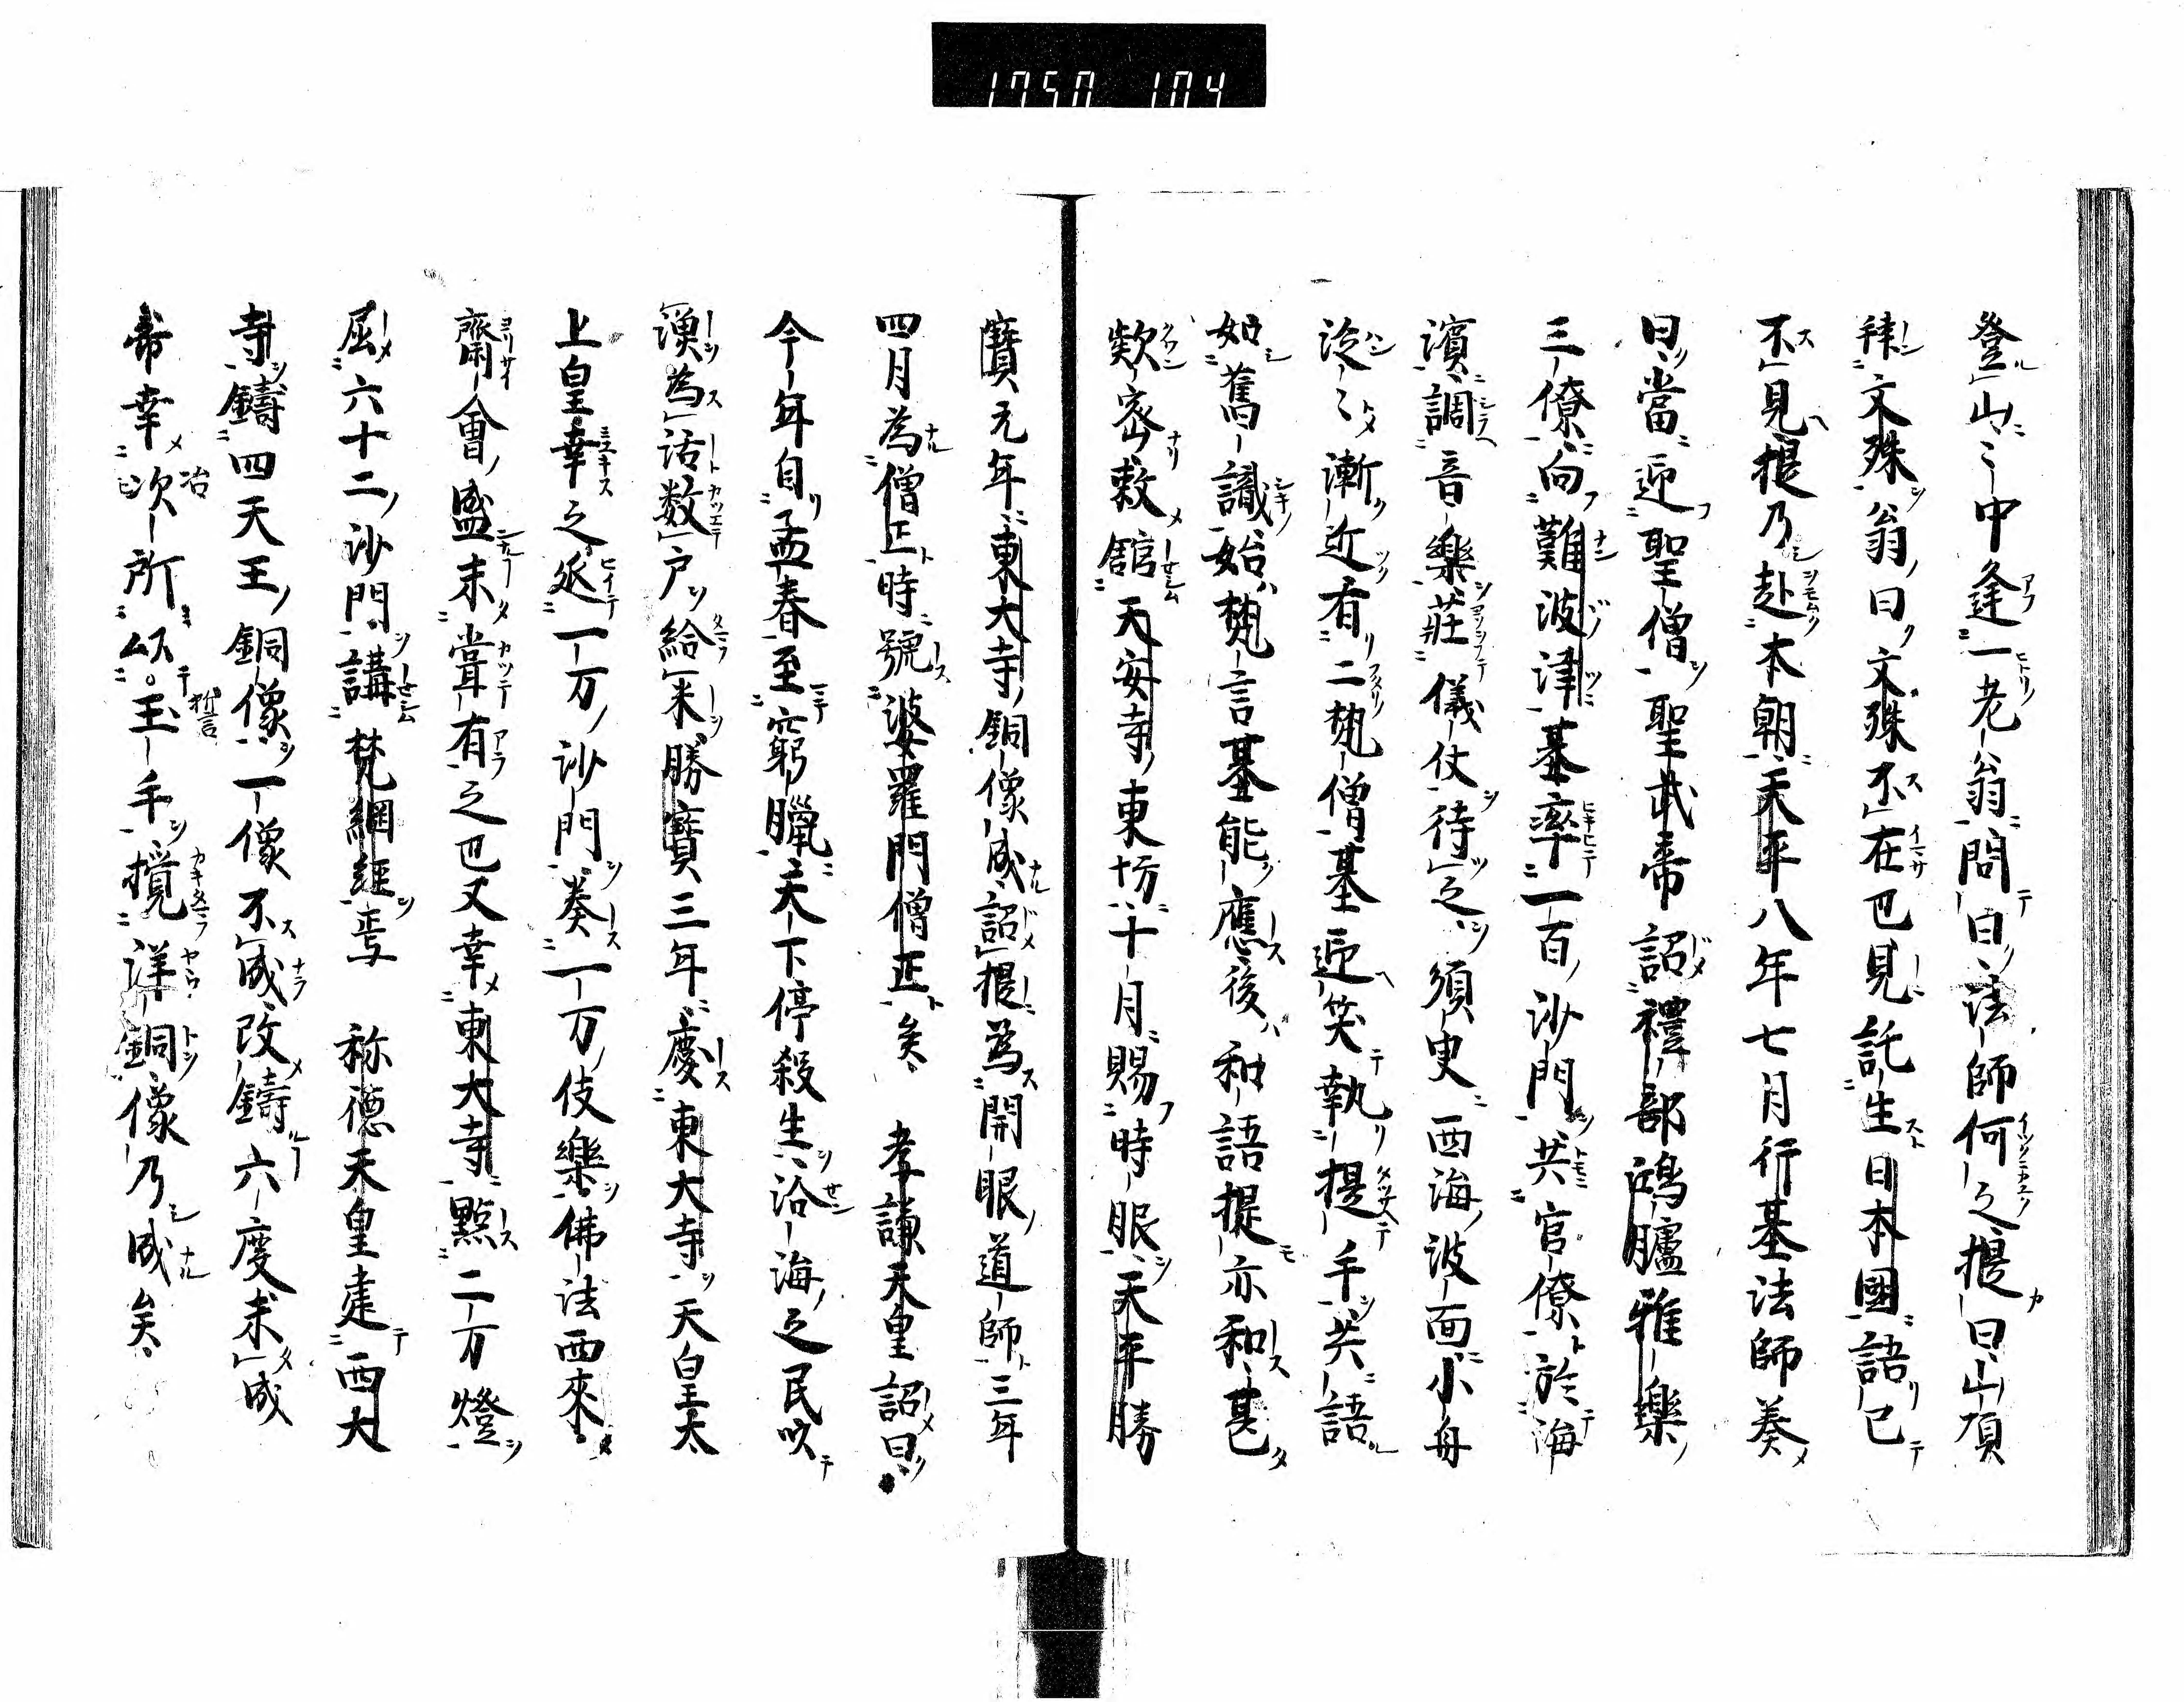 登山〻中逢一老翁問曰法師何之提曰山頂
拝文殊翁曰文殊不在也見託生日本國語已
不見提乃赴本朝天平八年七月行基法師奏
曰當迎聖僧聖武帝詔禮部鴻臚雅樂
三僚向難波津基率一百沙門共官僚於海
濱調音樂莊儀仗待之須臾西海波面小舟
泛〻漸近有二梵僧基迎笑執提手共語
如舊識始梵言基能應後和語提亦和甚
欵密敕館天安寺東坊十月賜時服天平勝
寶元年東大寺銅像成詔提為開眼道師三年
四月為僧正時號婆羅門僧正矣　孝謙天皇詔曰
今年自孟春至窮臘天下停殺生洽海之民以
漁為活数戸給米勝寶三年慶東大寺天皇太
上皇幸之延一万沙門奏一万伎樂佛法西來
齋會盛未甞有之也又幸東大寺點二万燈
屈六十二沙門講梵網經焉　称徳天皇建西大
寺鑄四天王銅像一像不成改鑄六度未成
帝幸冶所誓玉手攪洋銅像乃成矣
1750 104